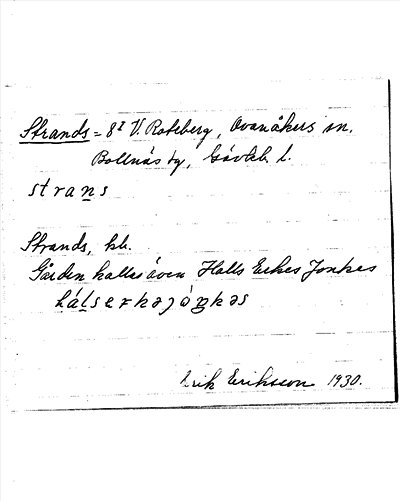 Strands = 8ᴵ V. Roteberg, Ovanåkers sn.
Bollnäs tg, Gävleb. l.
strans
Strands, hb.
Gården kallas även Halls Erkes Jonkes
Erik Eriksson 1930.